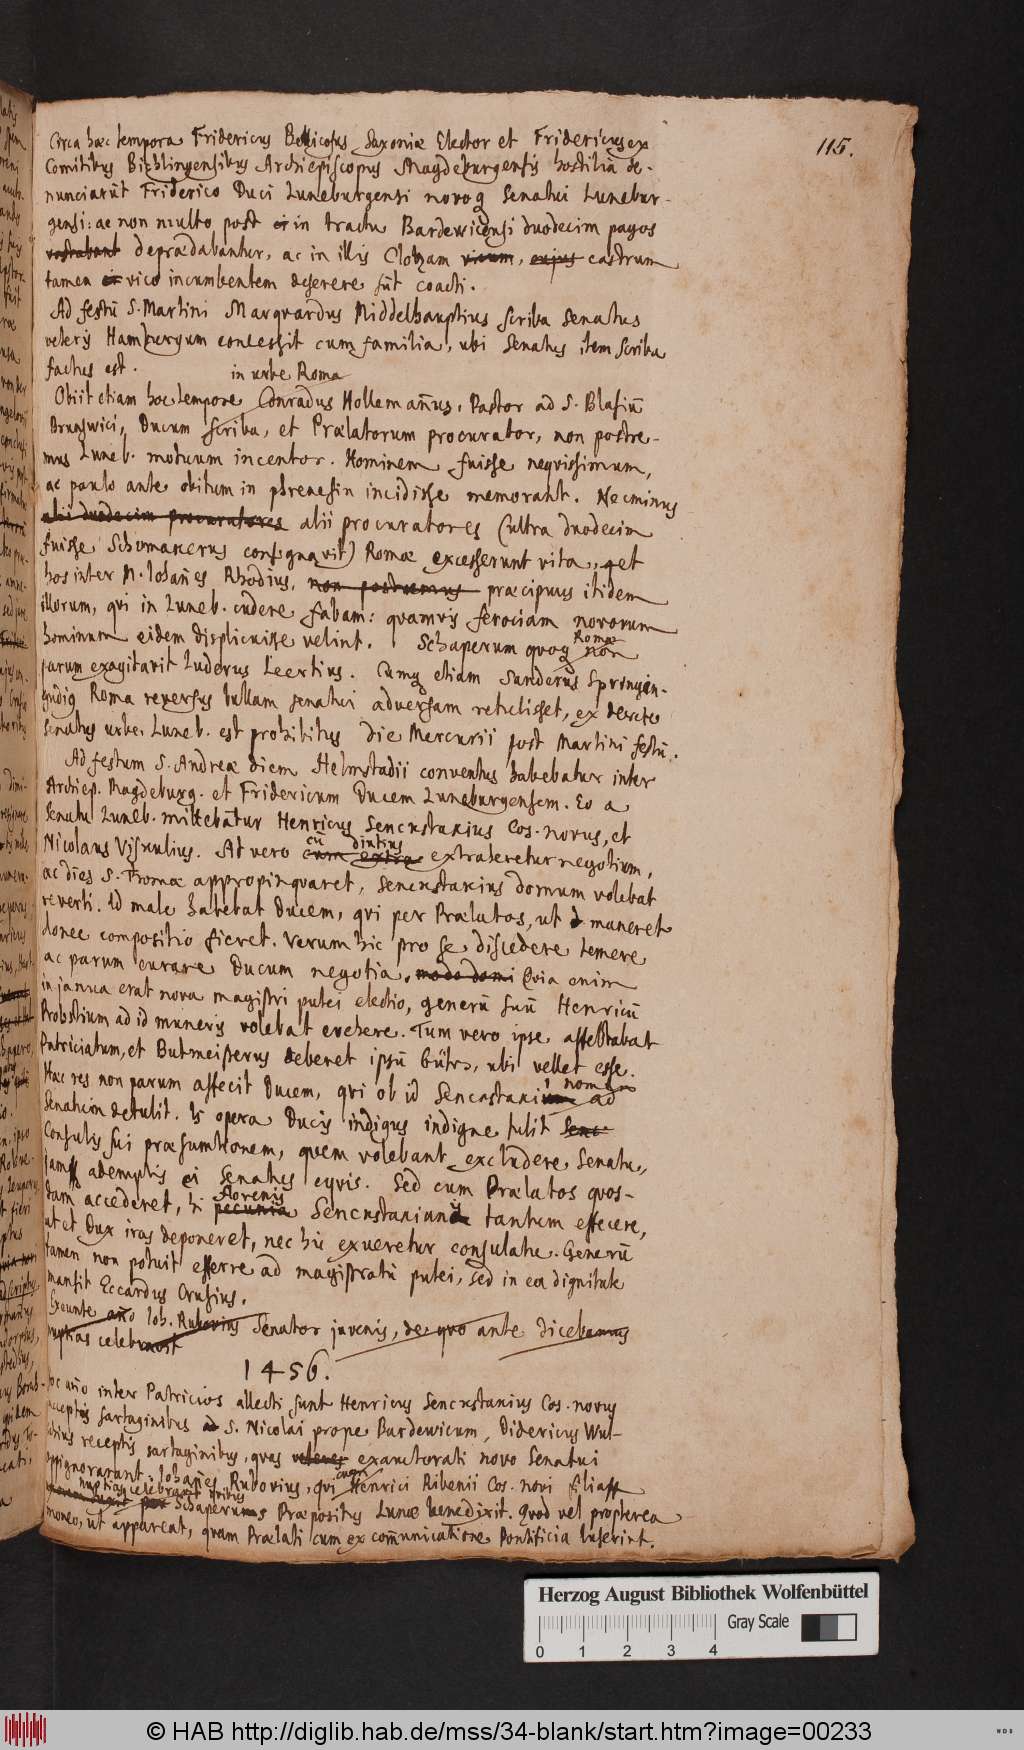 115.
Circa hæc tempora Fridericus Bellicosus Saxoniæ Elector et Fridericus ex
Comitibus Bichlingensibus Archiepiscopus Magdeburgensis hostilia de-
nunciarūt Friderico Duci Luneburgensi novoq Senatui Lunebur-
gensi: ac non multo post in tractu Bardewicensi duodecim pagos
vastabant deprædabantur, ac in illis Clotzam vicum, cujus castrum
tamen vico incumbentem deserere sūt coacti.
Ad festū S. Martini Marquardus Middelhauptius scriba Senatus
veteris Hamburgum concessit cum familia, ubi Senatus item scriba
factus est.
in urbe Roma
Obiit etiam hoc tempore Conradus Hollemañus, Pastor ad S. Blasiū
Brunswici, Ducum scriba, et Prælatorum procurator, non postre-
mus Luneb. motuum incentor. Hominem fuisse neqvissimum,
ac paulo ante obitum in phrenesin incidisse memorant. Nec minus
alii duodecim procuratores alii procuratores (ultra duodecim
fuisse Schomakerus consignavit) Romæ excesserunt vita, et
hos inter M. Johañes Rhodius, non postremus præcipuus itidem
illorum, qvi in Luneb. cudere fabam: quamvis ferociam novorum
hominum eidem displicuisse velint. Schaperum quoq Romæ non
parum exagitavit Luderus Leertius. Cumq etiam Sanderus Springin-
gudig Roma reversus bullam senatui adversam retulisset, ex decreto
senatus urbe Luneb. est prohibitus die Mercurii post Martini festū.
Ad festum S. Andreæ diem Helmstadii conventus habebatur inter
Archiep. Magdeburg. et Fridericum Ducem Luneburgensem. Eo a
Senatu Luneb. mittebatur Henricus Sencustanius Cos. novus, et
Nicolaus Visculius. At vero cū diutius
cum extra extraheretur negotium,
ac dies S. Thomæ appropinquaret, Sencustanius domum volebat
reverti. Id male habebat Ducem, qvi per Prælatos, ut maneret
donec compositio fieret. Verum hic pro se discedere temere
ac parum curare Ducum negotia. modo domi Qvia enim
in janua erat nova magistri putei electio, generū suū Henricū
Probstium ad id muneris volebat evehere. Tum vero ipse affectabat
Patriciatum, et Butmeisterus deberet ipsū, ubi vellet esse.
Hæc res non parum affecit Ducem, qvi ob id Sencastani nomen ad
Senatum detulit. Is opera Ducis indigus indigne tulit Senc-
Consulis sui præsumtionem, quem volebant excludere Senatu,
jamq ademptis ei Senatus eqvis. Sed cum Prælatos quos-
dam accederet, hi florenis
pecunia Sencustanium tantum effecere,
ut et Dux iras deponeret, nec hic exueretur consulatu. Generū
tamen non potuit efferre ad magistratū putei, sed in ea dignitate
mansit Eccardus Crusius.
Exeunte año Joh. Rubovius Senator juvenis, de quo ante dicebamus
nuptias celebravit
1456.
Hoc año inter Patricios allecti sunt Henricus Sencustanius Cos. novus
acceptis sartaginibus ad S. Nicolai prope Bardewicum, Didericus Wul-
fhius receptis sartaginibus, quas veteres exauctorati novo Senatui
oppignorarant. Johañes Rubovius, qvi cum Henrici Ribenii Cos. novi filia
nuptias celebravit
quorum Schaperus Præpositus Lunæ benedixit. Quod vel propterea
moneo, ut appareat, quam Prælati cum excom̄unicatione Pontificia luserint.
Herzog August Bibliothek Wolfenbüttel
Gray Scale
0 1 2 3 4
© HAB http://diglib.hab.de/mss/34-blank/start.htm?image=00233